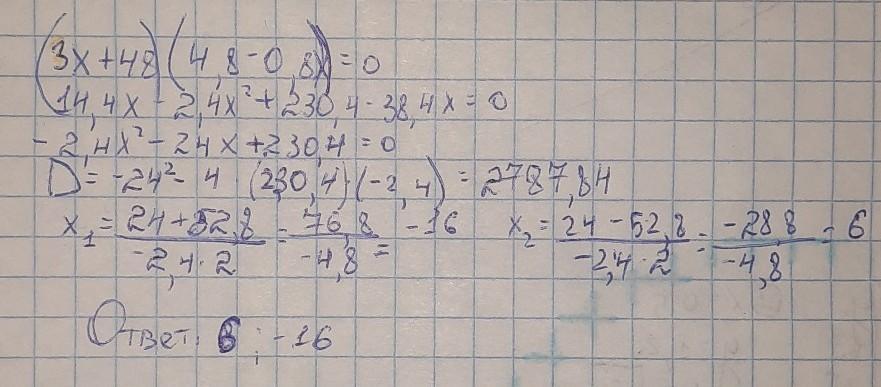 (3x+48)(4,8-0,8x)=0
14,4x-2,4x²+230,4-38,4x=0
-2,4x²-24x+230,4=0
D=-24²-4(230,4)·(-2,4)=2787,84
x₁=24+52,8/-2,4·2=76,8/-4,8=-16 x₂=24-52,8/-2,4·2=-288/-4,8=6
Ответ: 6; -16